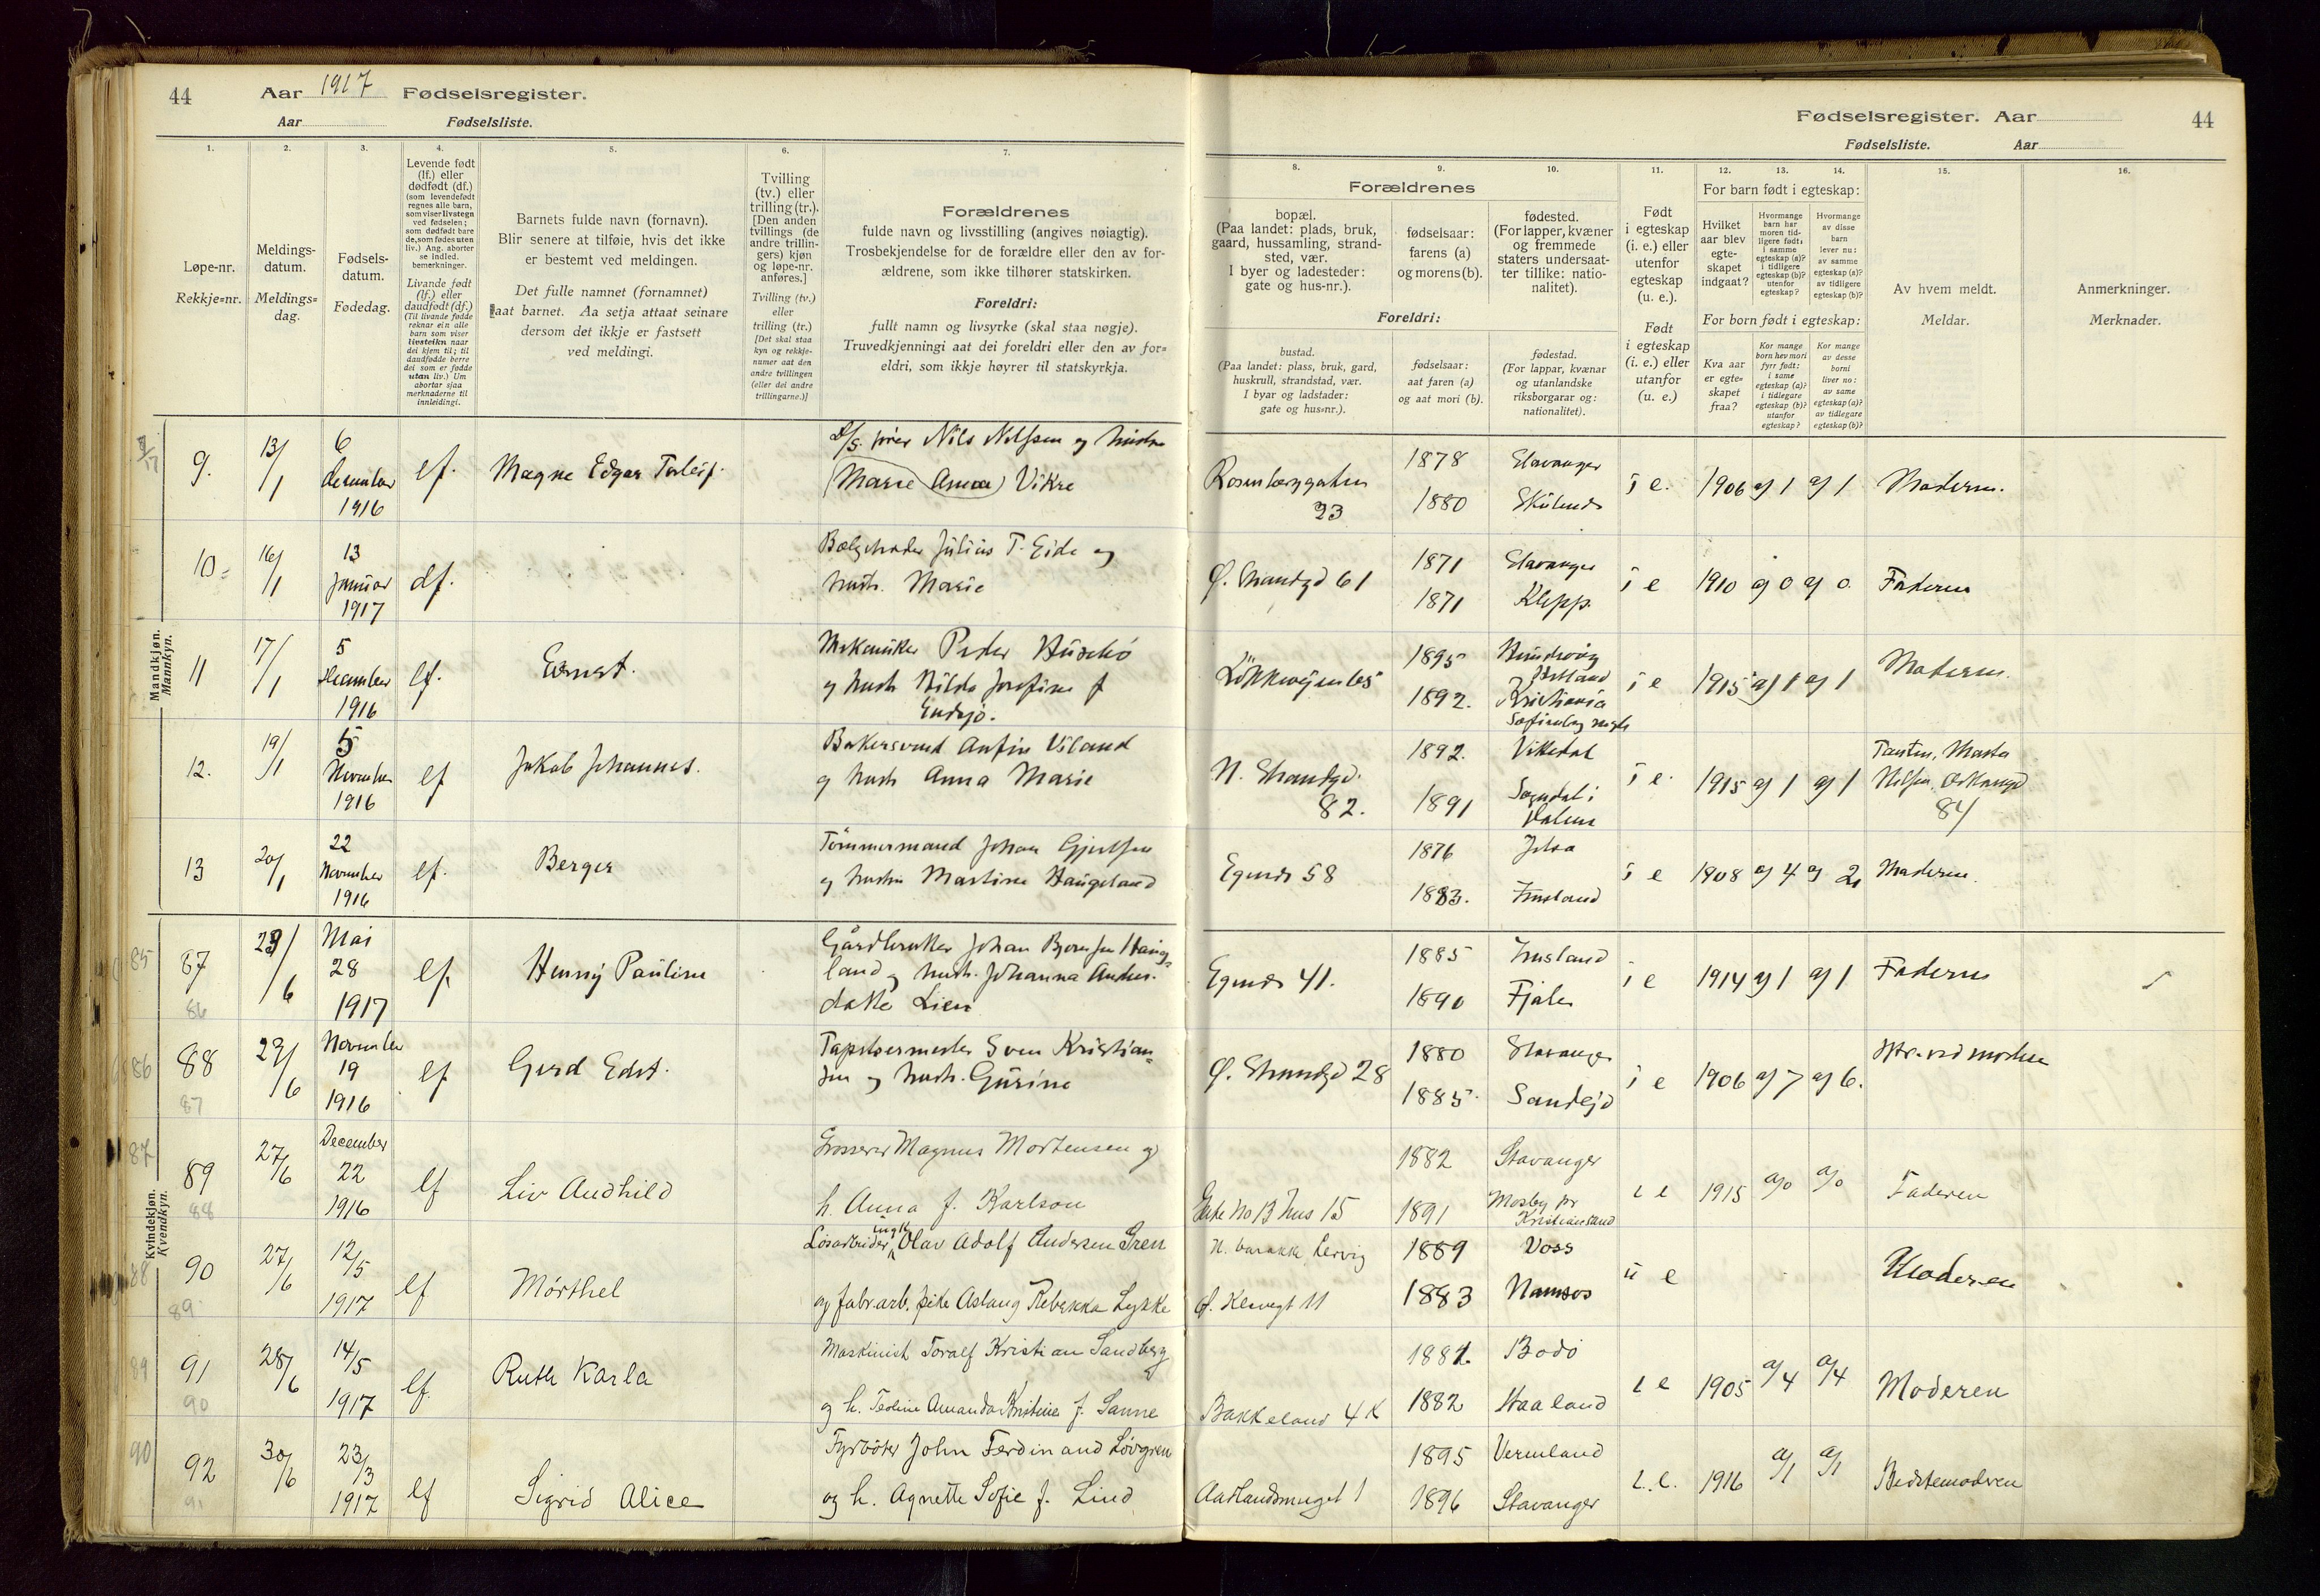 44 Aar 1917 Fødselsregister.
Aar Fødselsliste.
1. 2. 3. 4. 5. 6. 7.
Løpe-nr.
Rekkje=nr.
Meldings-
datum.
Meldings=
dag.
Fødsels-
datum.
Fødedag.
Levende født
(lf.) eller
dødfødt (df.)
(som levendefødt
regnes alle barn,
som viser livstegn
ved fødselen;
som dødfødt bare
de, som fødes uten
liv.) Ang. aborter
se indled.
bemerkninger.
Livande født
(lf.) eller
daudfødt (df.)
(Til livande fødde
reknar ein alle
born som viser
livsteikn naar
dei kjem til; til
daudfødde berre
dei som er fødde
utan liv.) Um
abortar sjaa
merknaderne til
innleidingi.
Barnets fulde navn (fornavn).
Blir senere at tilføie, hvis det ikke
er bestemt ved meldingen.
Det fulle namnet (fornamnet)
aat barnet. Aa setja attaat seinare
dersom det ikkje er fastsett
ved meldingi.
Tvilling
(tv.) eller
trilling (tr.).
[Den anden
tvillings (de
andre trillin-
gers) kjøn
og løpe-nr.
anføres.]
Tvilling (tv.)
eller
trilling (tr.)
[Det skal staa
kyn og rekkje-
numer aat den
andre tvillingen
(eller dei andre
trillingarne.)]
Forældrenes
fulde navn og livsstilling (angives nøiagtig).
Trosbekjendelse for de forældre eller den av for-
ældrene, som ikke tilhører statskirken.
Foreldri:
fullt namn og livsyrke (skal staa nøgje).
Truvedkjenningi aat dei foreldri eller den av for=
eldri, som ikkje høyrer til statskyrkja.
Mandkjøn.
Mannkyn.
9. 13/1 6 december 1916 lf. Magne Edgar Torleif.
Nils Nilssen og hustru
Marie Anna Vikre
10 16/1 13 januar 1917 df.
Julius T. Eide og
hustr. Marie
11 17/1 5 december 1916 lf. Ernst.
Mekaniker Peder Husebö
og hustr. Hilda Josefine f
Endsjø.
12. 19/1 5 November 1916 lf Jakob Johannes.
Bakersvend Anfin Viland
og hustr Anna Marie
13 20/1 22 November 1916 lf. Berger
Tömmermand Johan Gjertsen
og hustru Martine Haugeland
Kvindekjøn.
Kvendkyn.
85 87 86 23/6 Mai 28 1917 lf Henny Pauline
Gårdbruker Johan Haug-
land og hustr. Johanna Anders-
datter Lien
86 88 87 23/6 November 19 1916 lf Gerd Edit.
Tapetsermester Sven Kristian-
sen og hustr. Gurine
87 89 88 27/6 December 22 1916 lf Liv Audhild
Grosserer Magnus Mortensen og
h. Anna f. Karlson
88 90 89 27/6 12/5 1917 lf Mörthel
Løsarbeider ungk. Olav Adolf Andersen Gren
og fabr.arb. pike Aslaug Rebekka Lykke
89 91 90 28/6 14/5 1917 lf. Ruth Karla
Maskinist Toralf Kristian Sandberg
og h. Teoline Amanda Kristine f. Sanne
90 92 91 30/6 23/3 1917 lf Sigrid Alice
Fyrböter John Ferdinand Lövgren
og h. Agnette Sofie f. Lind
Fødselsregister. Aar 44
Fødselsliste. Aar
8. 9. 10. 11. 12. 13. 14. 15. 16.
Forældrenes
bopæl.
(Paa landet: plads, bruk,
gaard, hussamling, strand-
sted, vær.
I byer og ladesteder:
gate og hus-nr.).
fødselsaar:
farens (a)
og morens (b).
fødested.
(For lapper, kvæner
og fremmede
staters undersaat-
ter tillike: natio-
nalitet).
Foreldri:
bustad.
(Paa landet: plass, bruk, gard,
huskrull, strandstad, vær.
I byar og ladstader:
gate og hus=nr.).
fødselsaar:
aat faren (a)
og aat mori (b).
fødestad.
(For lappar, kvænar
og utanlandske
riksborgarar og:
nationalitet).
Født
i egteskap
(i. e.) eller
utenfor
egteskap
(u. e.).
Født
i egteskap
(i. e.) eller
utanfor
egteskap
(u. e.)
For barn født i egteskap:
Hvilket
aar blev
egte-
skapet
indgaat?
Hvormange
barn har
moren tid-
ligere født:
i samme
egteskap (a)?
i tidligere
egteskap (b)?
utenfor
egteskap?
Hvormange
av disse
barn
lever nu:
av samme
egteskap (a)?
av tidligere
egteskap (b)?
For born født i egteskap:
Kva aar
er egte=
skapet
fraa?
Kor mange
born hev mori
fyrr født:
i same
egteskap (a)?
i tidlegare
egteskap (b)?
utanfor
egteskap?
Kor mange
av desse
borni
liver no:
av same
egteskap (a)?
av tidlegare
egteskap (b)?
Av hvem meldt.
Meldar.
Anmerkninger.
Merknader.
Rosenberggaten 23 1878 Stavanger 1880 i e. 1906 a/1 a/1 Moderen.
Ø. Strandgd 61 1871 Stavanger 1871 Klepp. i e 1910 a/0 a/0 Faderen
Lökkeveien 65 1895 Hundvåg Hetland 1892. Kristiania i e 1915 a/1 a/1 Moderen.
N. Strandgd. 82. 1892. Vikedal 1891 Sogndal i Dalene i e. 1915 a/1 a/1 Tanten, Marta Nilsen, 84
Egenes 58 1876 Jelsa 1883. Imsland i e 1908 a/4 a/2 Moderen.
Egenes 41. 1885 Imsland 1890 Fjaler i e 1914 a/1 a/1 Faderen
Ø. Strandgd 28 1880 Stavanger 1885 Sandeid i e 1906 a/7 a/6.
Eike No 13 hus 15 1882 Stavanger 1891 Mosby pr Kristianssand i e 1915 a/0 a/0 Faderen
N. barakke Lervig 1889 Voss
Ø. 11 1883 Namsos u e Moderen
Bakkeland 4 K 1881. Bodö 1882 Haaland i e 1905 a/4 a/4 Moderen
1 1895 Vermland 1896 Stavanger i. e. 1916 a/1 a/1 Bedstemoderen